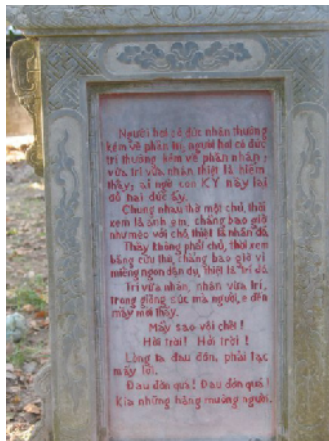 Người hơi có đức nhân thường
kém về phần trí, người hơi có đức
trí thường kém về phần nhân;
vừa trí vừa nhân thiệt là hiếm
thấy; ai ngờ con KY này lại
đủ hai đức ấy.
Chung nhau thờ một chủ, thời
xem là anh em, chẳng bao giờ
như mèo với chó thiệt là nhân đó.
Thấy không phải chủ, thời xem
bằng cừu thù, chẳng bao giờ vì
miếng ngon dận dụ, thiệt là trí đó.
Trí vừa nhân, nhân vừa trí,
trong giống súc mà người, e đến
mày mới thấy.
Mầy sao vội chết!
Hỡi trời! Hỡi trời!
Lòng ta đau đớn, phải tạc
mấy lời.
Đau đớn quá! Đau đớn quá!
Kìa những hạng muông người.